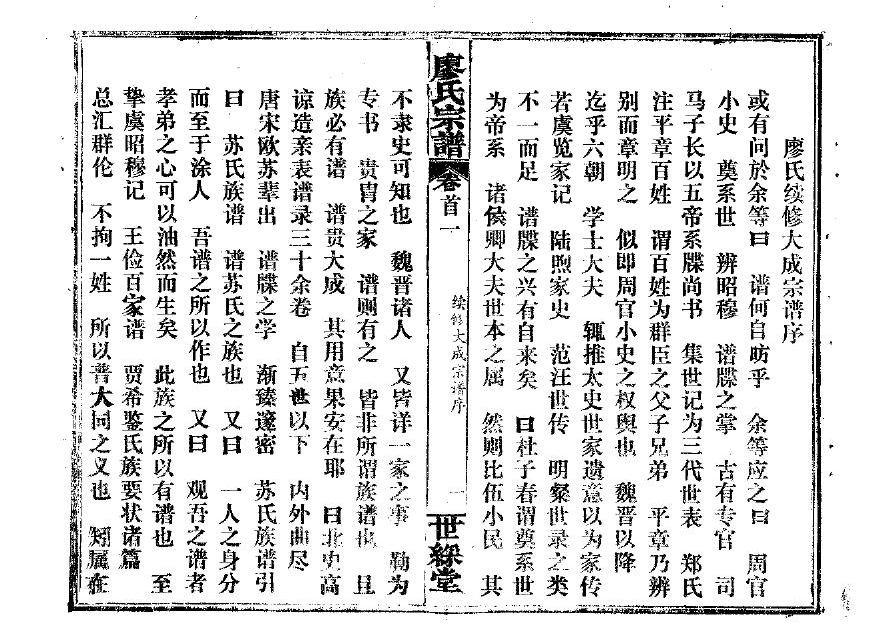 廖氏续修大成宗谱序
或有问於余等曰 谱何自昉乎 余等应之曰 周官
小史 奠系世 辨昭穆 谱牒之掌 古有专官 司
马子长以五帝系牒尚书 集世记为三代世表 郑氏
注平章百姓 谓百姓为群臣之父子兄弟 平章乃辨
别而章明之 似即周官小史之权舆也 魏晋以降
迄乎六朝 学士大夫 辄推太史世家遗意以为家传
若虞览家记 陆煦家史 范汪世传 明粲世录之类
不一而足 谱牒之兴有自来矣 曰杜子春谓奠系世
为帝系 诸侯卿大夫世本之属 然则比伍小民 其
廖氏宗譜
卷首一
续修大成宗谱序
一
世綵堂
不隶史可知也 魏晋诸人 又皆详一家之事 勒为
专书 贵胄之家 谱则有之 皆非所谓族谱也 且
族必有谱 谱贵大成 其用意果安在耶 曰北史高
谅造亲表谱录三十余卷 自五世以下 内外曲尽
唐宋欧苏辈出 谱牒之学 渐臻邃密 苏氏族谱引
曰 苏氏族谱 谱苏氏之族也 又曰 一人之身分
而至于涂人 吾谱之所以作也 又曰 观吾之谱者
孝弟之心可以油然而生矣 此族之所以有谱也 至
挚虞昭穆记 王俭百家谱 贾希鉴氏族要状诸篇
总汇群伦 不拘一姓 所以普大同之义也 翙属在